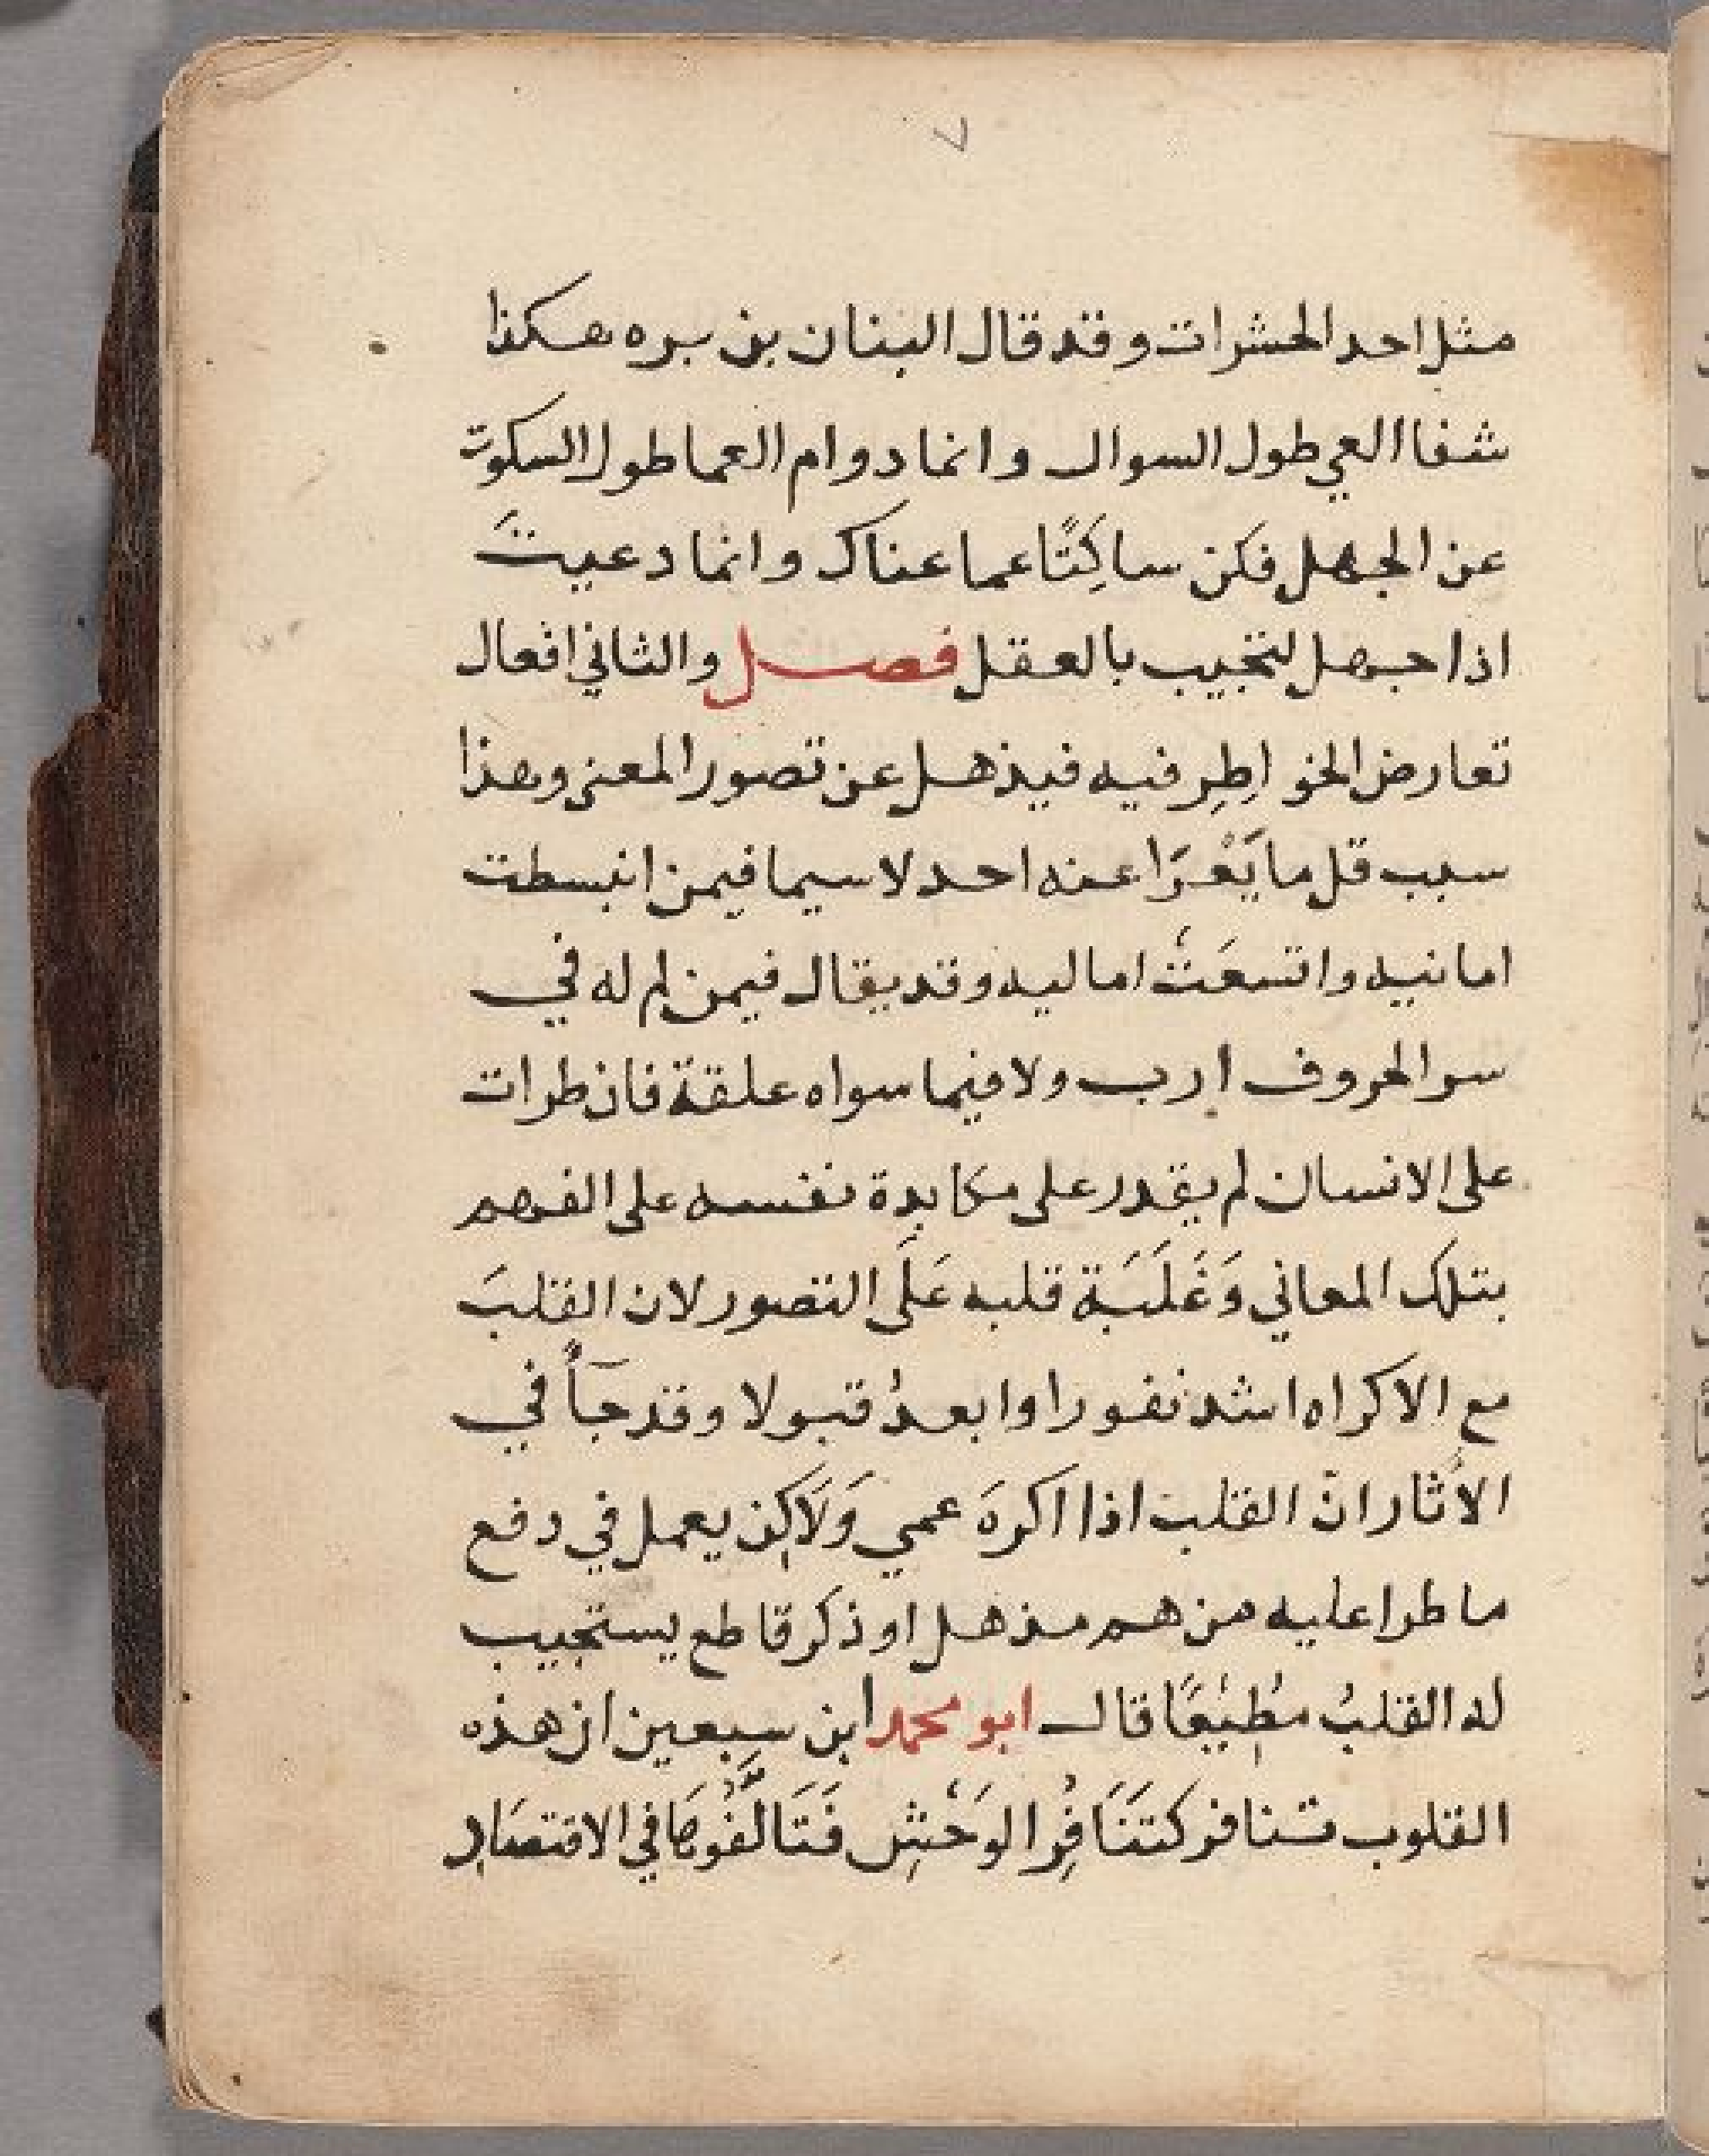 ٧
مثل احد الحشرات وقد قال البنان بن بره هكذا
شفا العي طول السوال وانما دوام العما طول السكوت
عن الجهل فكن ساكِتًا عما عناك وانما دعيتَ
اذا جهل لتجيب بالعقل فصل والثاني افعال
تعارض الخواطِر فيه فيذهل عن تصور المعنى وهذا
سبب قل ما يَعْرَا عنه احد لا سيما فيمن انبسطت
امانيه واتسعَتْ اماليه وقد يقال فيمن لم له في
سوا لحروف ارب ولا فيما سواه علقة فان طرات
على الانسان لم يقدر على مكابدة نفسه على الفهم
بتلك المعاني وَغَلَبَة قلبه عَلَى التصور لان القلبَ
مع الاكراه اشد نفورا وابعدُ قبولا وقد جَآءَ في
الاَثار انّ القلب اذا اكرهَ عمي وَلَاكِن يعمل في دفع
ما طرا عليه من هم مذهل او ذكر قاطع يستجيب
له القلبُ مُطِيْعًا قال ابو محمد ابن سبعين ان هذه
القلوب تنافر كتَنَافُرِ الوَحْشِ فَتَالَّفُوهَا في الاقتصَاد